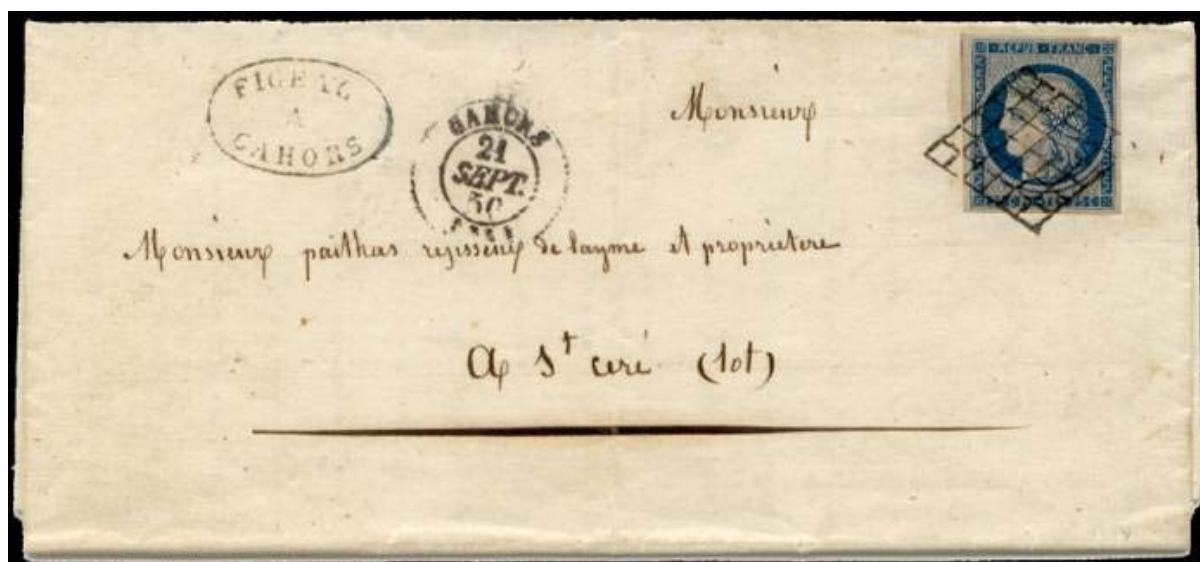 A
CAHORS
CAHORS
21
SEPT.
50
REPUB · FRANC ·
Monsieur
Monsieur paithas de layme et propriètere
A St ceré (lot)